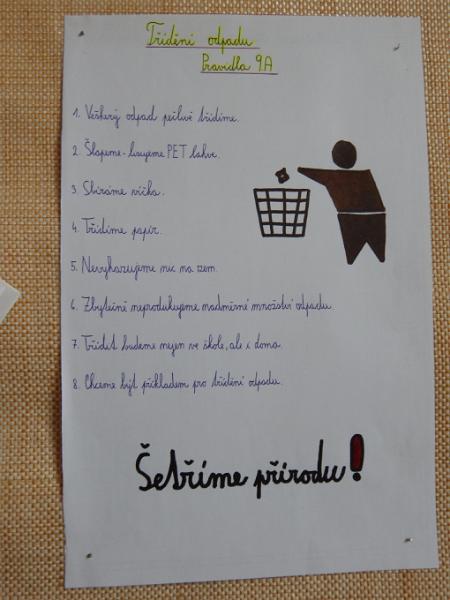 Třídění odpadu
Pravidla 9.A
1. Veškerý odpad pečlivě třídíme.
2. Šlapeme-lisujeme PET lahve.
3. Sbíráme víčka.
4. Třídíme papír.
5. Nevyhazujeme nic na zem.
6. Zbytečně neprodukujeme nadměrné množství odpadu.
7. Třídit budeme nejen ve škole, ale i doma.
8. Chceme být příkladem pro třídění odpadu.
Šetříme přírodu!